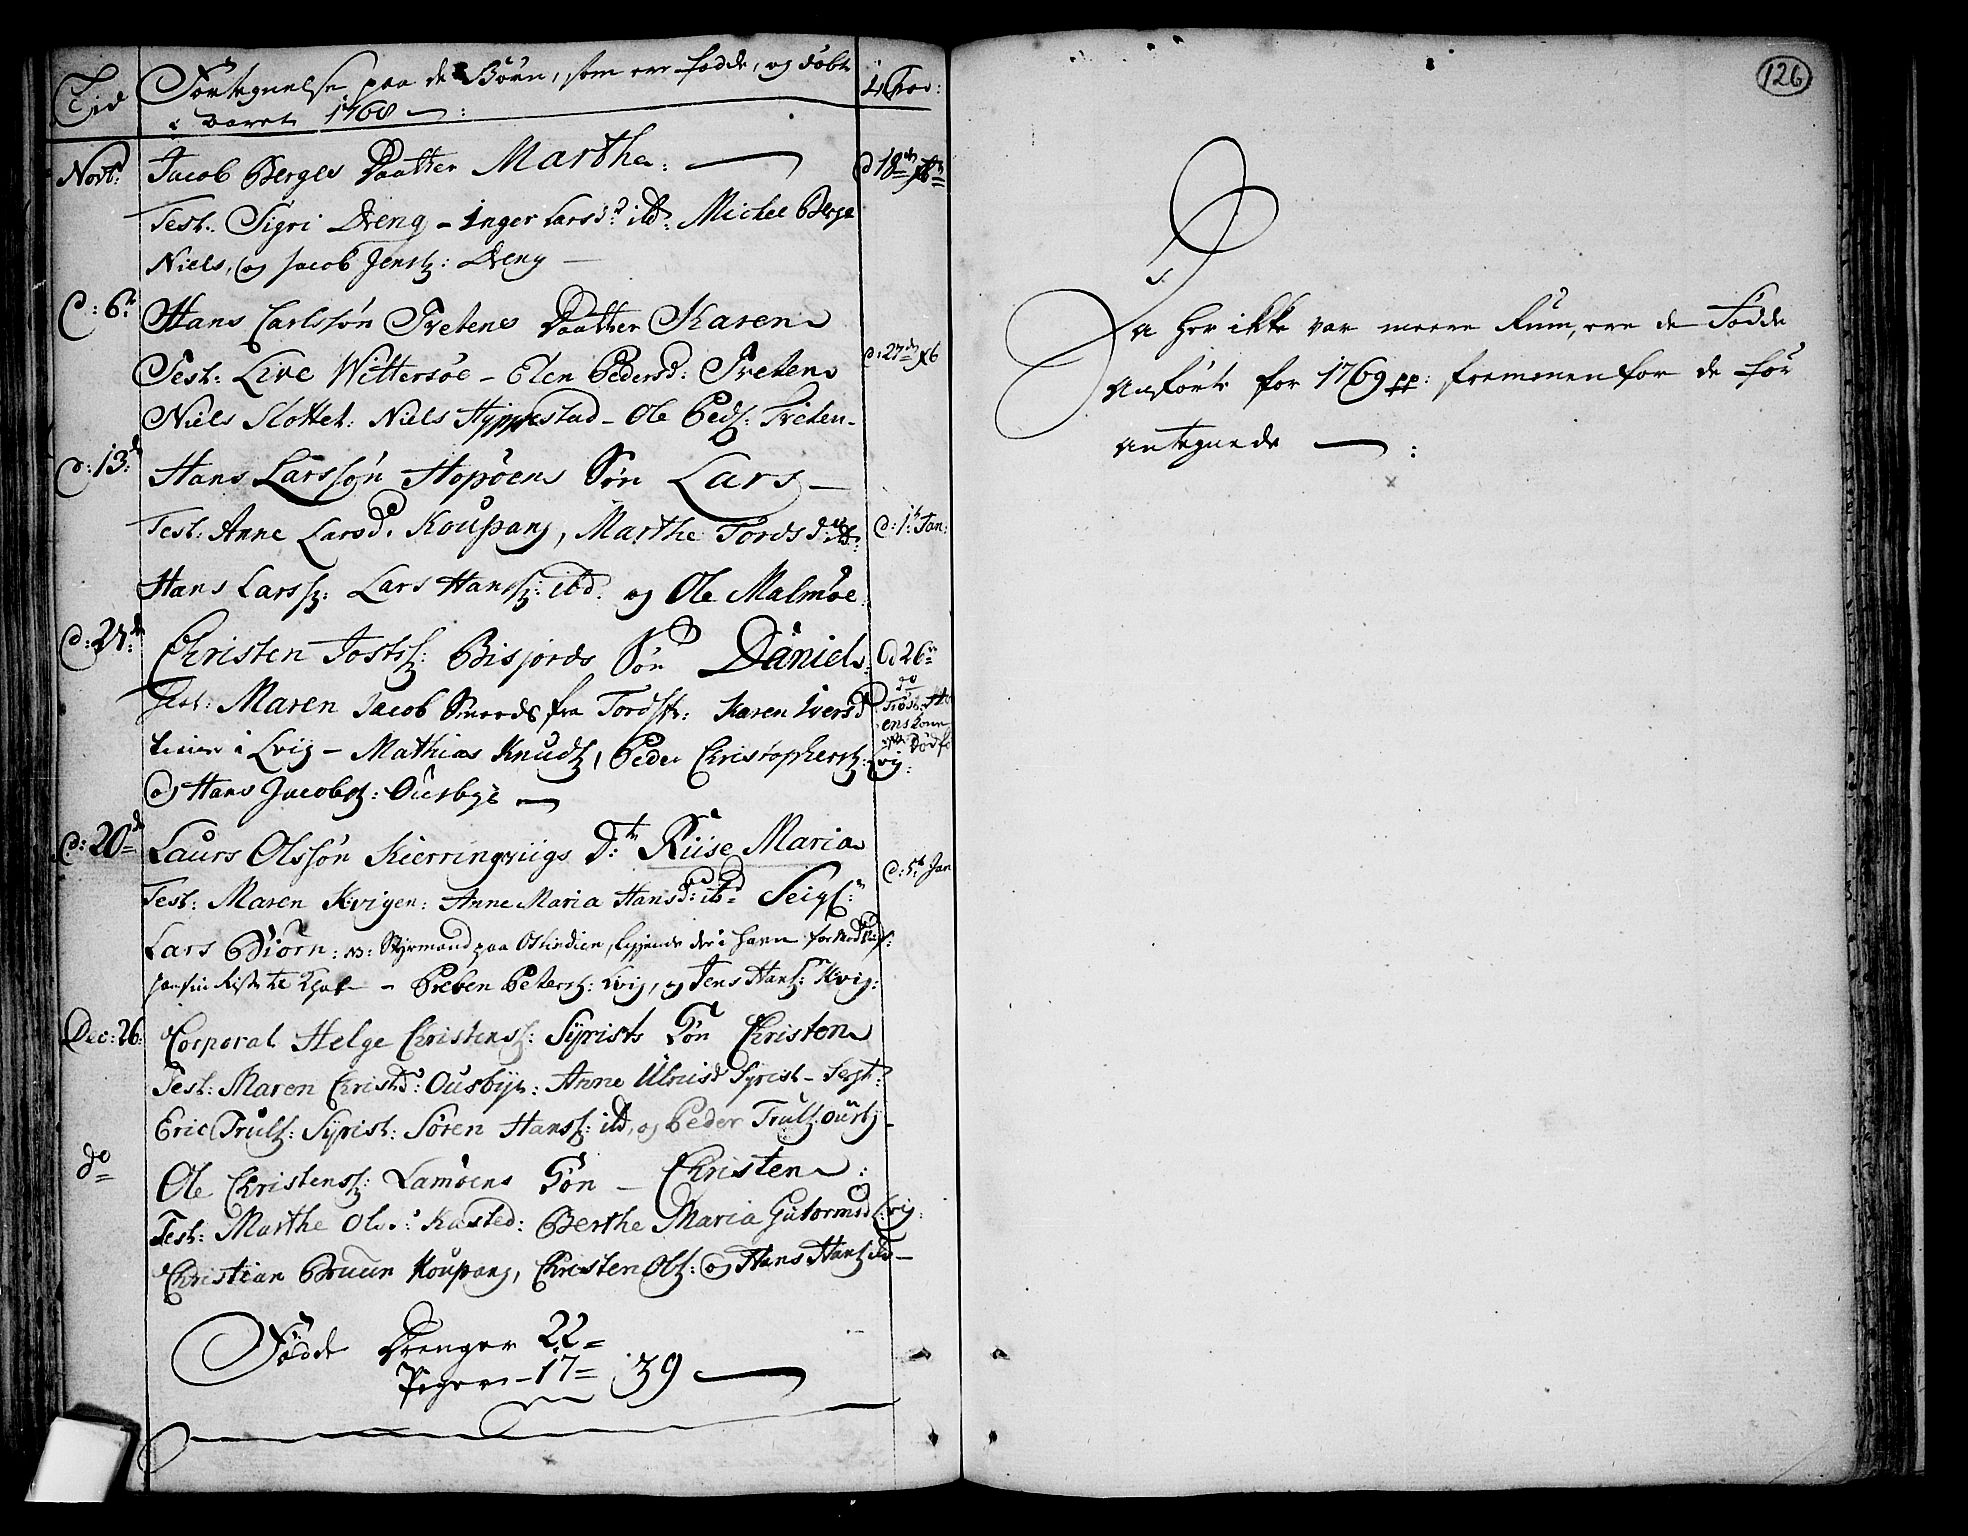 Tid
Fortegnelse paa de Børn, som ere fødde, og døbte
i Aaret 1768
Novb:
Jacob Berges Daatter Marthe:
d 18de
Test: Sigri Dreng - Inger Larsd: ibd: Michel Berge
Niels, og Jacob Jensz: Dreng
d: 6te
Hans Carlssøn Tvetenes Daatter Karen
Test: Live Wittersøe - Elen Pedersd: Tveten
d: 27de
Niels Slottet: Niels Hyppestad - Ole Pedz: Tveten
d: 13de
Hans Larssøn Hopøens Søn Lars
Test: Anne Larsd: Koupang, Marthe Tordsd: ibd:
d: 1te Jan:
Hans Larssz: Lars Hanssz: ibd: og Ole Malmøe
d: 27de
Christen Jostsz: Bisjords Søn Daniel
d 26te
Test: Maren Jacob Smeds fra Tordst: Karen Iversd
tiener i Lvig - Mathias Knudz, Peder Christophersz: Lvig:
og Hans Jacobsz: Ousbye
d: 20de
Laurs Olssøn Kierringviigs D: Riise Maria
Test: Maren Kvigen: Anne Maria Hansd: ibd Seigl:
d: 5te Jan
Lars Biørn: Styrmand paa Ostindien, liggende der i Havn
- Preben Petersz: Lvig, og Jens Hansz: Kvig:
Dec: 26
Corporal Helge Christensz: Syrists Søn Christen
Test: Maren Christd: Ousbye: Anne Ulrisd Syrist - Sergt:
Eric Trulz: Syrist: Søren Hansz: ibd, og Peder Trulz: Ousby
do
Ole Christensz: Lamøens Søn - Christen:
Test: Marthe Olsd: Kasted: Berthe Maria Gutormsd Lvig:
Christian Bruun Koupang, Christen Olz: og Hans Hansz ibd
Fødde Drenger 22
Piger - 17 39
126
Da her ikke var meere Rum, ere de Fødde
Anførte for 1769 pp: fremmenfor de før
antegnede